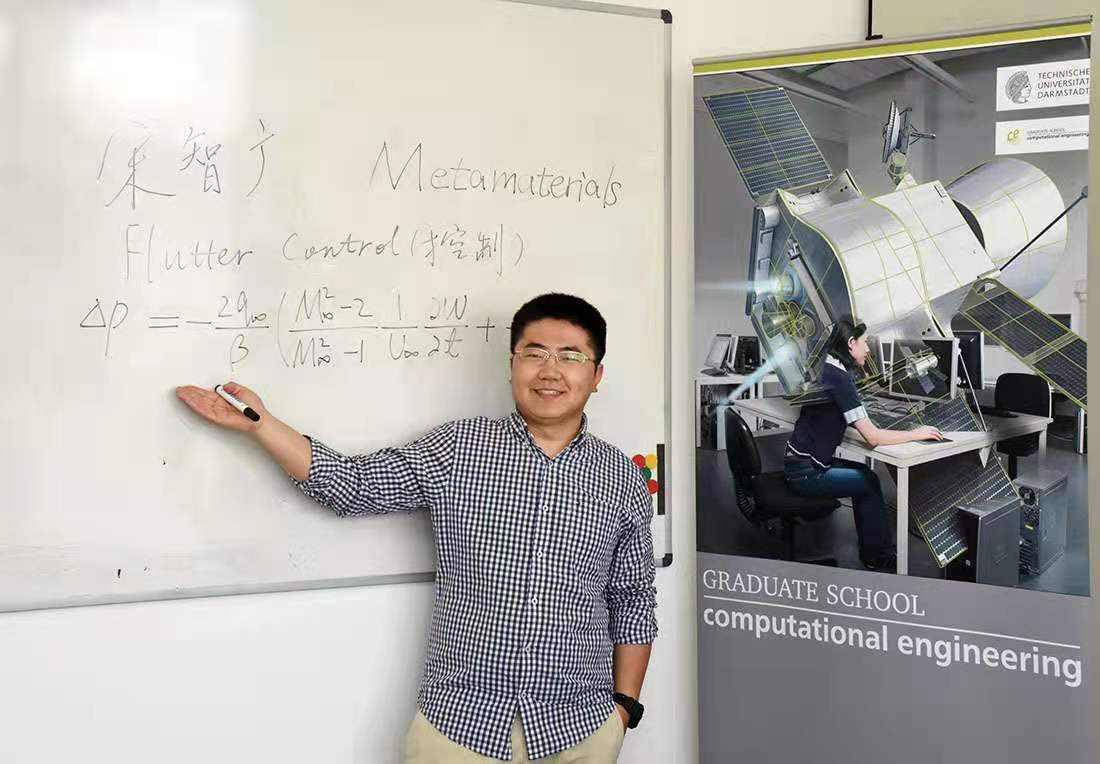 宋智广 Metamaterials
Flutter Control (控制)
Δp = - 2q∞/β ( M∞²-2/M∞²-1 1/U∞ ∂W/∂t +
TECHNISCHE
UNIVERSITÄT
DARMSTADT
ce GRADUATE SCHOOL
computational engineering
GRADUATE SCHOOL
computational engineering